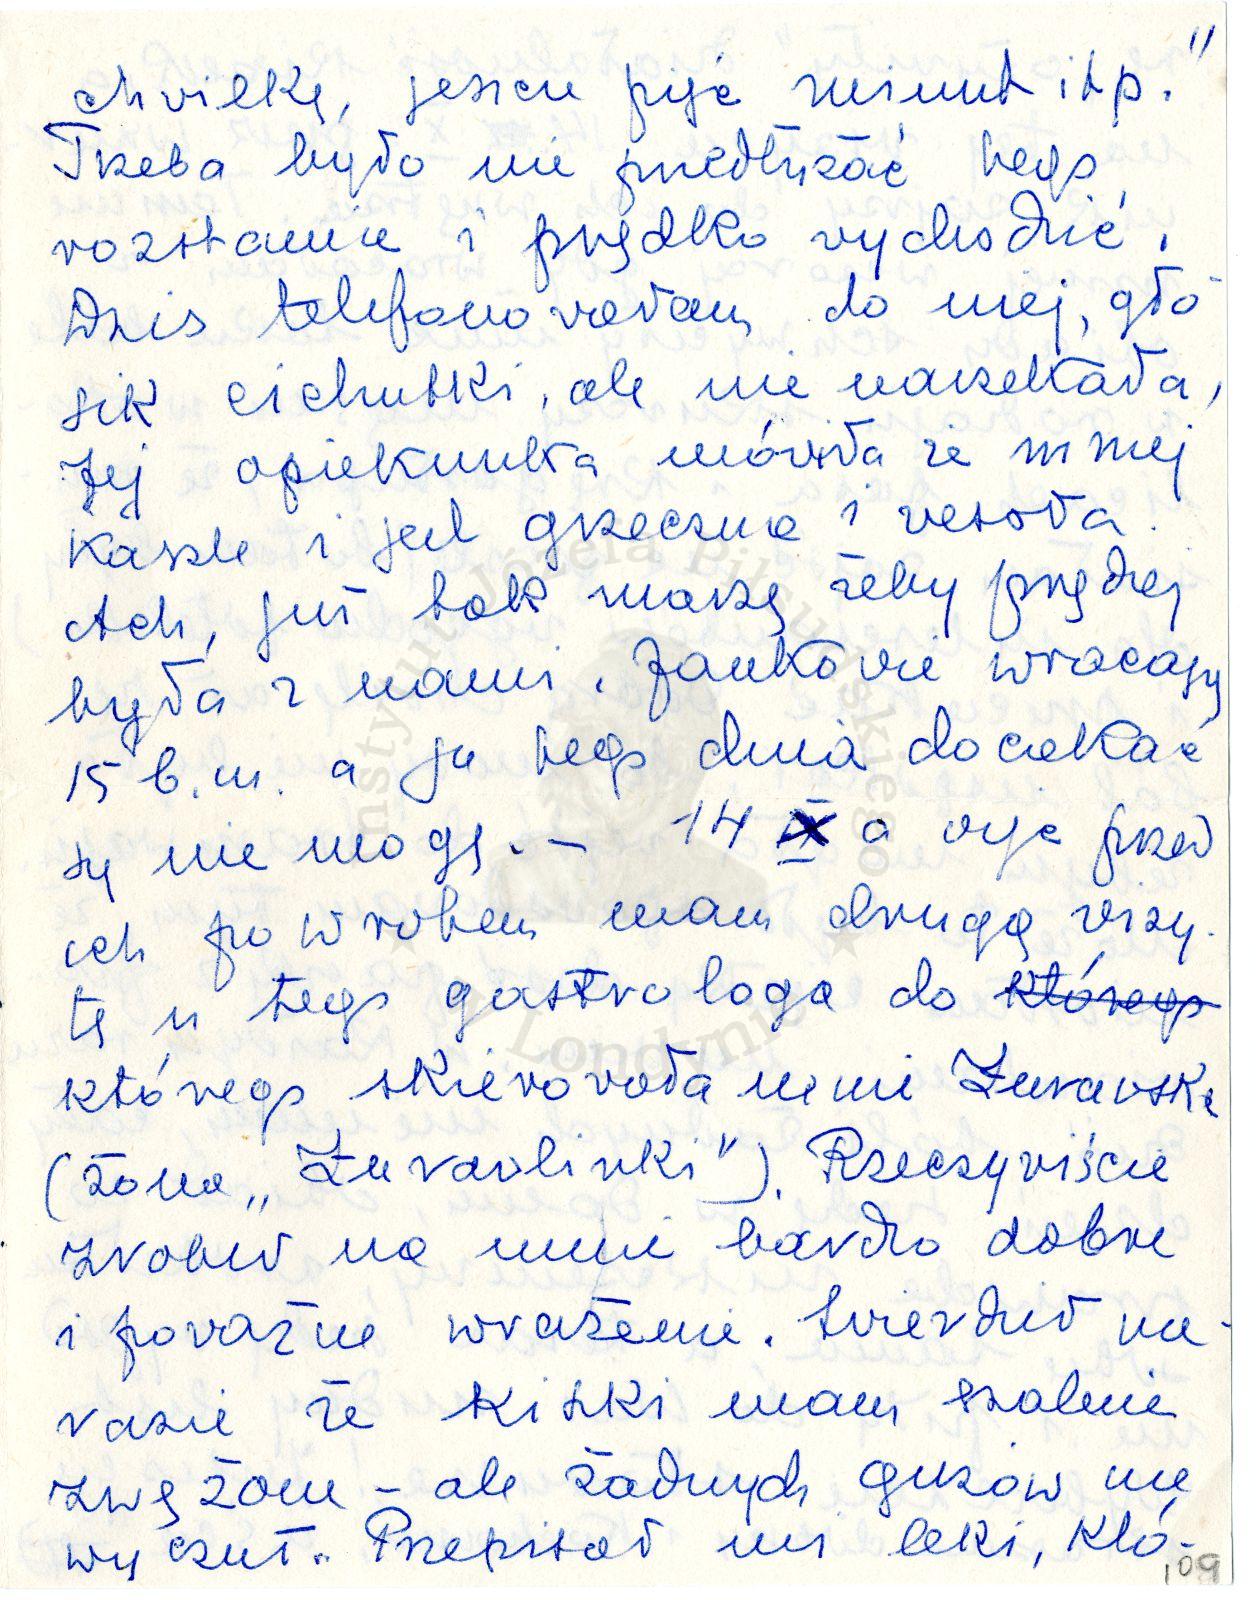 chwilkę, jeszcze pięć minut itp."
Trzeba było nie przedłużać tego
rozstania i prędko wychodzić.
Dziś telefonowałam do niej, gło-
sik cichutki, ale nie narzekała,
Jej opiekunka mówiła że mniej
kaszle i jest grzeczna i wesoła.
Ach, już tak marzę żeby prędzej
była z nami. Jankowie wracają
15 b.m. a ja tego dnia doczekać
się nie mogę. — 14 IX a więc przed
ich powrotem mam drugą wizy-
tę u tego gastrologa do którego
którego skierowała mnie Żurawska
(żona „Żurawlinki"). Rzeczywiście
zrobił na mnie bardzo dobre
i poważne wrażenie. Twierdził na-
razie że kiszki mam szalenie
zwężone – ale żadnych guzów nie
wyczuł. Przepisał mi leki, któ-
109
Instytut Józefa Piłsudskiego
★ w Londynie ★